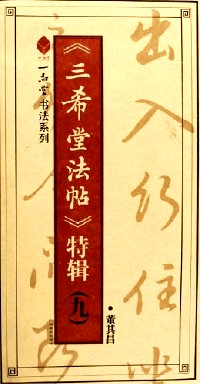 一品堂书法系列
《三希堂法帖》特辑（九）
·董其昌
出入行住坐